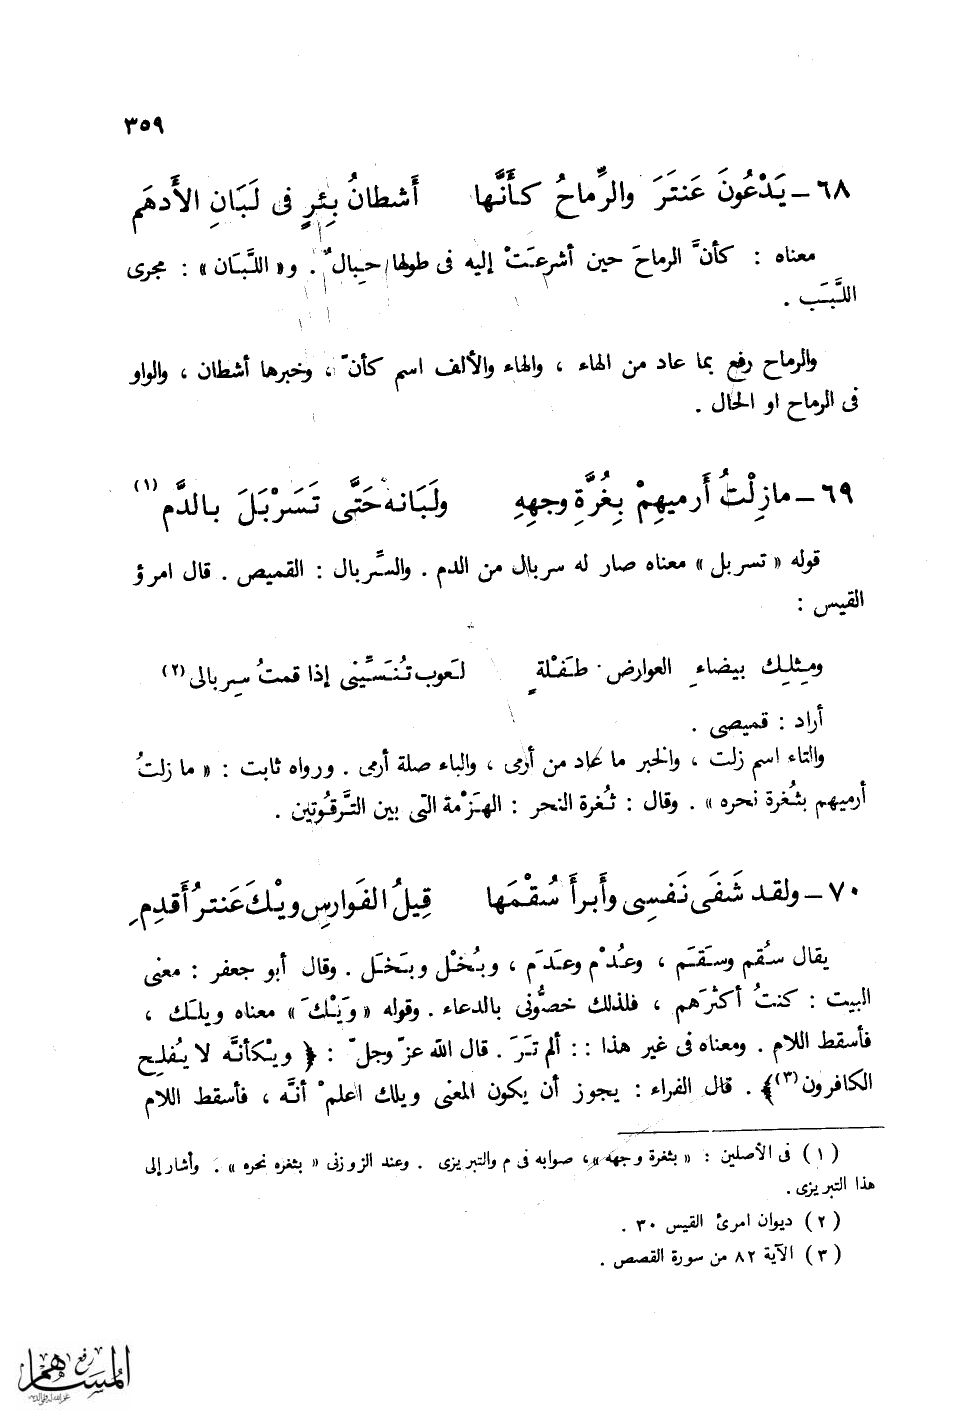 ٣٥٩
٦٨ – يَدْعُونَ عَنتَرَ والرِّماحُ كأَنَّها أَشطانُ بِئرٍ فى لَبَانِ الأَدهَم
معناه : كأنَّ الرماحَ حين أشرعَتْ إليه فى طولها حِبالٌ . و« اللَّبَان » : مجرى
اللَّبَب .
والرماح رفع بما عاد من الهاء ، والهاء والألف اسم كأنّ ، وخبرها أشطان ، والواو
فى الرماح او الحال .
٦٩ – مازِلْتُ أَرميهِمْ بِغُرَّةِ وجهِهِ ولَبَانه حَتَّى تَسَرْبَلَ بالدَّم (١)
قوله « تسربل » معناه صار له سربال من الدم . والسِّربال : القميص . قال امرؤ
القيس :
ومِثلِك بيضاءِ العوارض طَفْلةٍ لعَوب تُنَسِّينى إذا قمتُ سِربالى (٢)
أراد : قميصى .
والتاء اسم زلت ، والخبر ما عاد من أرمى ، والباء صلة أرمى . ورواه ثابت : « ما زلتُ
أرميهم بثُغرة نحره » . وقال : ثُغرة النحر : الهَزْمة التى بين التَّرقُوتين .
٧٠ – ولقد شَفَى نَفسِى وأَبرأَ سُقْمَها قِيلُ الفَوارِسِ ويْكَ عَنترُ أَقدِمِ
يقال سُقم وسَقَم ، وعُدْم وعدَم ، وبُخْل وبَخَل . وقال أبو جعفر : معنى
البيت : كنتُ أكثرَهم ، فلذلك خصُّونى بالدعاء . وقوله « وَيْلكَ » معناه ويلَك ،
فأسقط اللام . ومعناه فى غير هذا : : ألم تَرَ . قال الله عزّ وجلّ : ﴿ ويْكأنَّه لا يُفلِح
الكافرون (٣) ﴾ . قال الفراء : يجوز أن يكون المعنى ويلك اعلمْ أنَّه ، فأسقط اللام
(١) فى الأصلين : « بثغرة وجهه » ، صوابه فى م والتبريزى . وعند الزوزنى « بثغره نحره » . وأشار إلى
هذا التبريزى .
(٢) ديوان امرئ القيس ٣٠ .
(٣) الآية ٨٢ من سورة القصص .